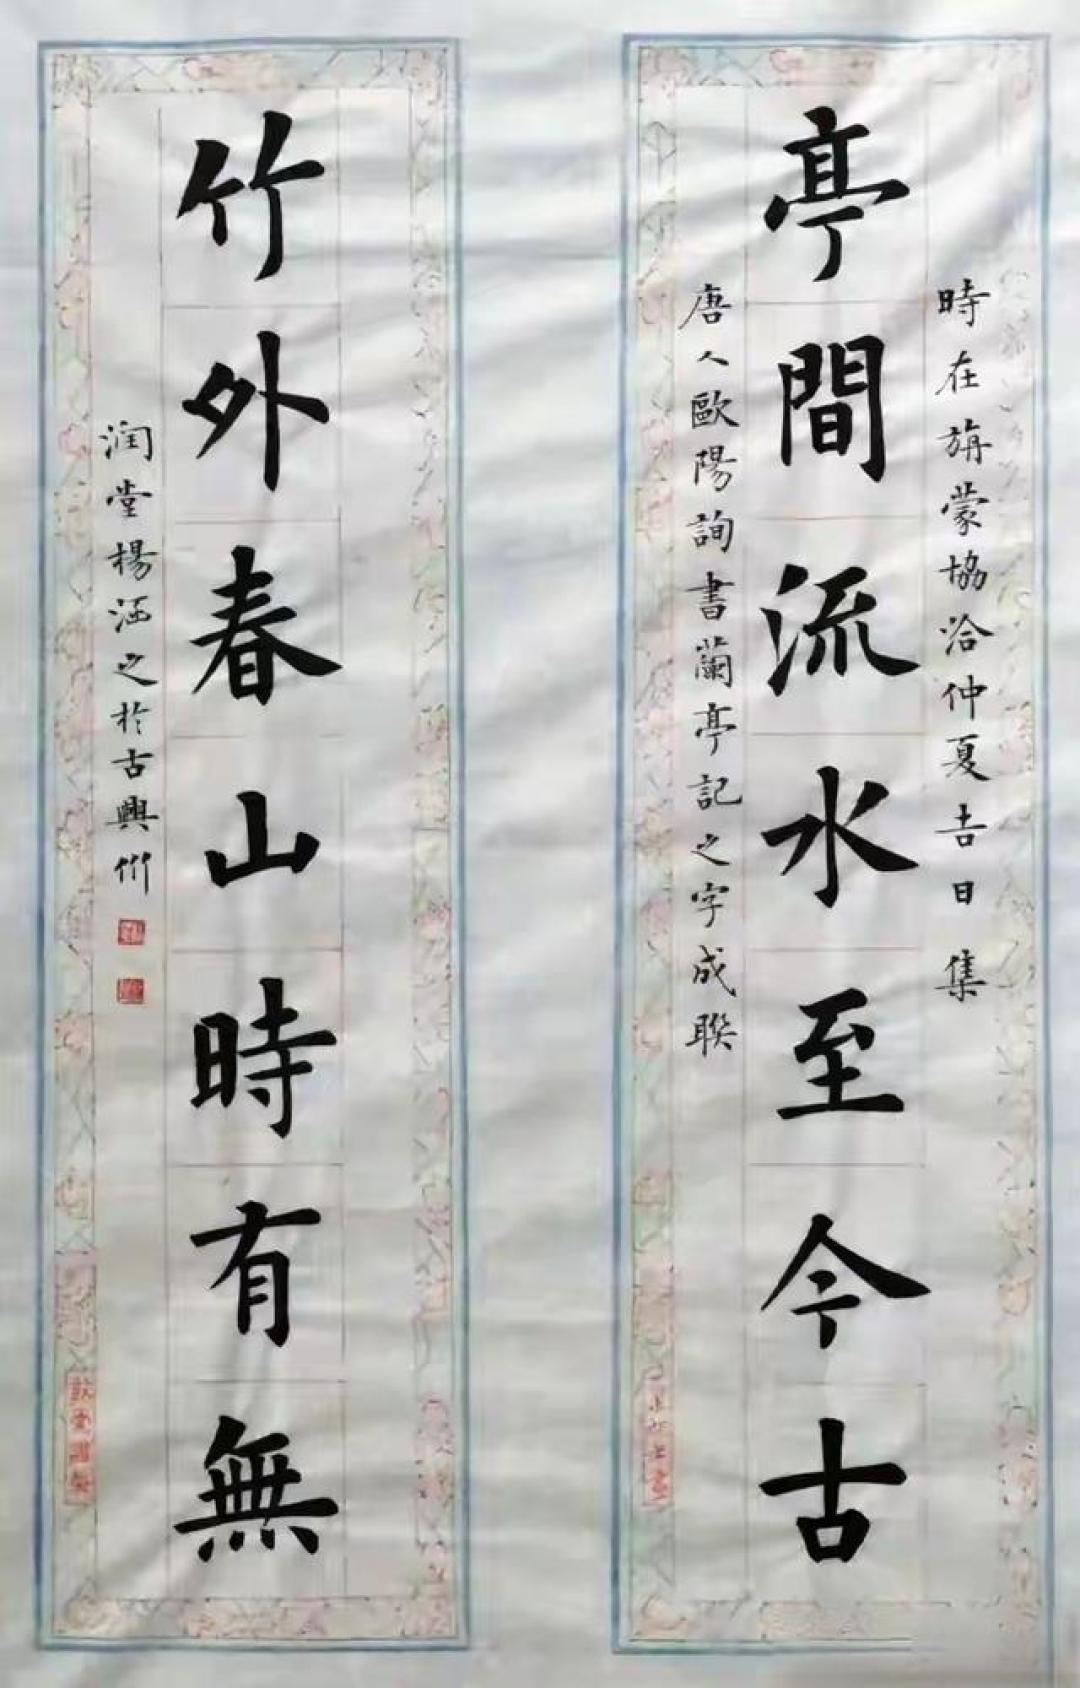 時在旃蒙協洽仲夏吉日集
亭間流水至今古
唐人歐陽詢書蘭亭記之字成聯
竹外春山時有無
润堂楊沍之於古興州